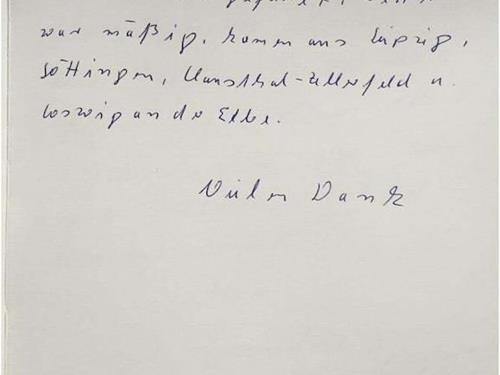 war mäßig, kamen aus Leipzig,
Göttingen, Clausthal-Zellerfeld u.
Coswig an der Elbe.
Vielen Dank